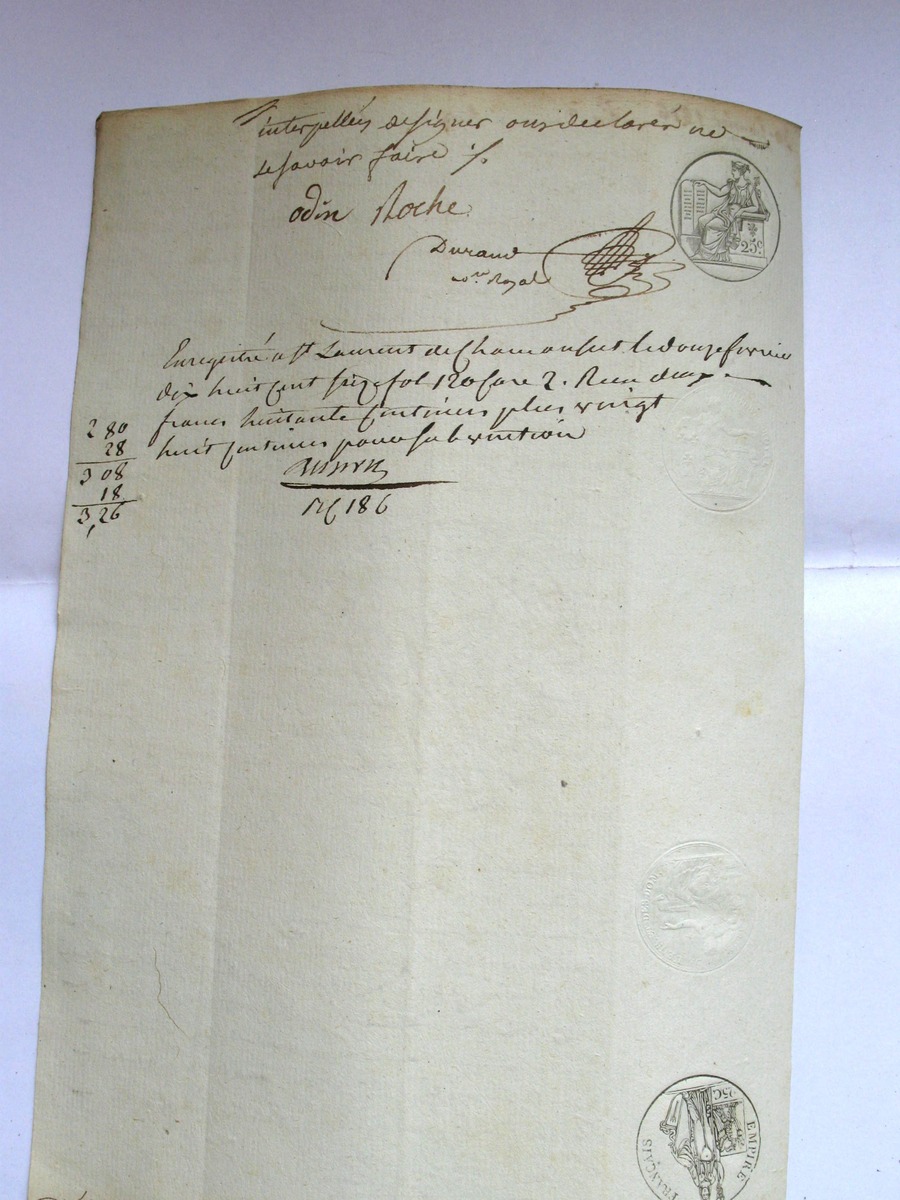 interpellés de signer ons déclarer ne
le savoir faire ./.
odin Roche
Durand
nre Royal
25c.
Enregistré a St Laurent de Chamousset le douze fevrier
dix huit cent seize fol 120 Case 2. Recu deux
francs huitante centimes plus vingt
huit centimes pour subvention
2 80
28
3 08
18
3,26
186
25C
EMPIRE
FRANÇAIS